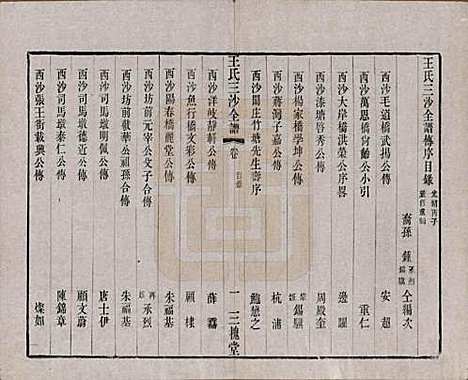 王氏三沙全譜傳序目錄
裔孫 鍾 仝編次
西沙毛道橋武揚公傳 安超
西沙萬恩橋肯齡公小引 童仁
西沙大岸橋洪榮公序畧 邊躍
西沙漆塘啓秀公傳 周殿奎
西沙楊家橋學坤公傳 錫驥
西沙蔣灣子嘉公傳 杭浦
西沙閭庄竹塘先生壽序 鮑懋之
王氏三沙全譜
卷 目錄
一 三槐堂
西沙洋岐靜軒公傳 薛
西沙魚行橋文彩公傳 顧棣
西沙陽春橋麗堂公傳 朱福基
西沙坊前元宰公文子合傳 承烈
西沙坊前載華公祖孫合傳 朱福基
西沙司馬墩明佩公傳 唐士伊
西沙司馬墩德近公傳 顧文蔚
西沙司馬墩泰儒公傳 陳錦章
西沙張王衖載興公傳 燦如